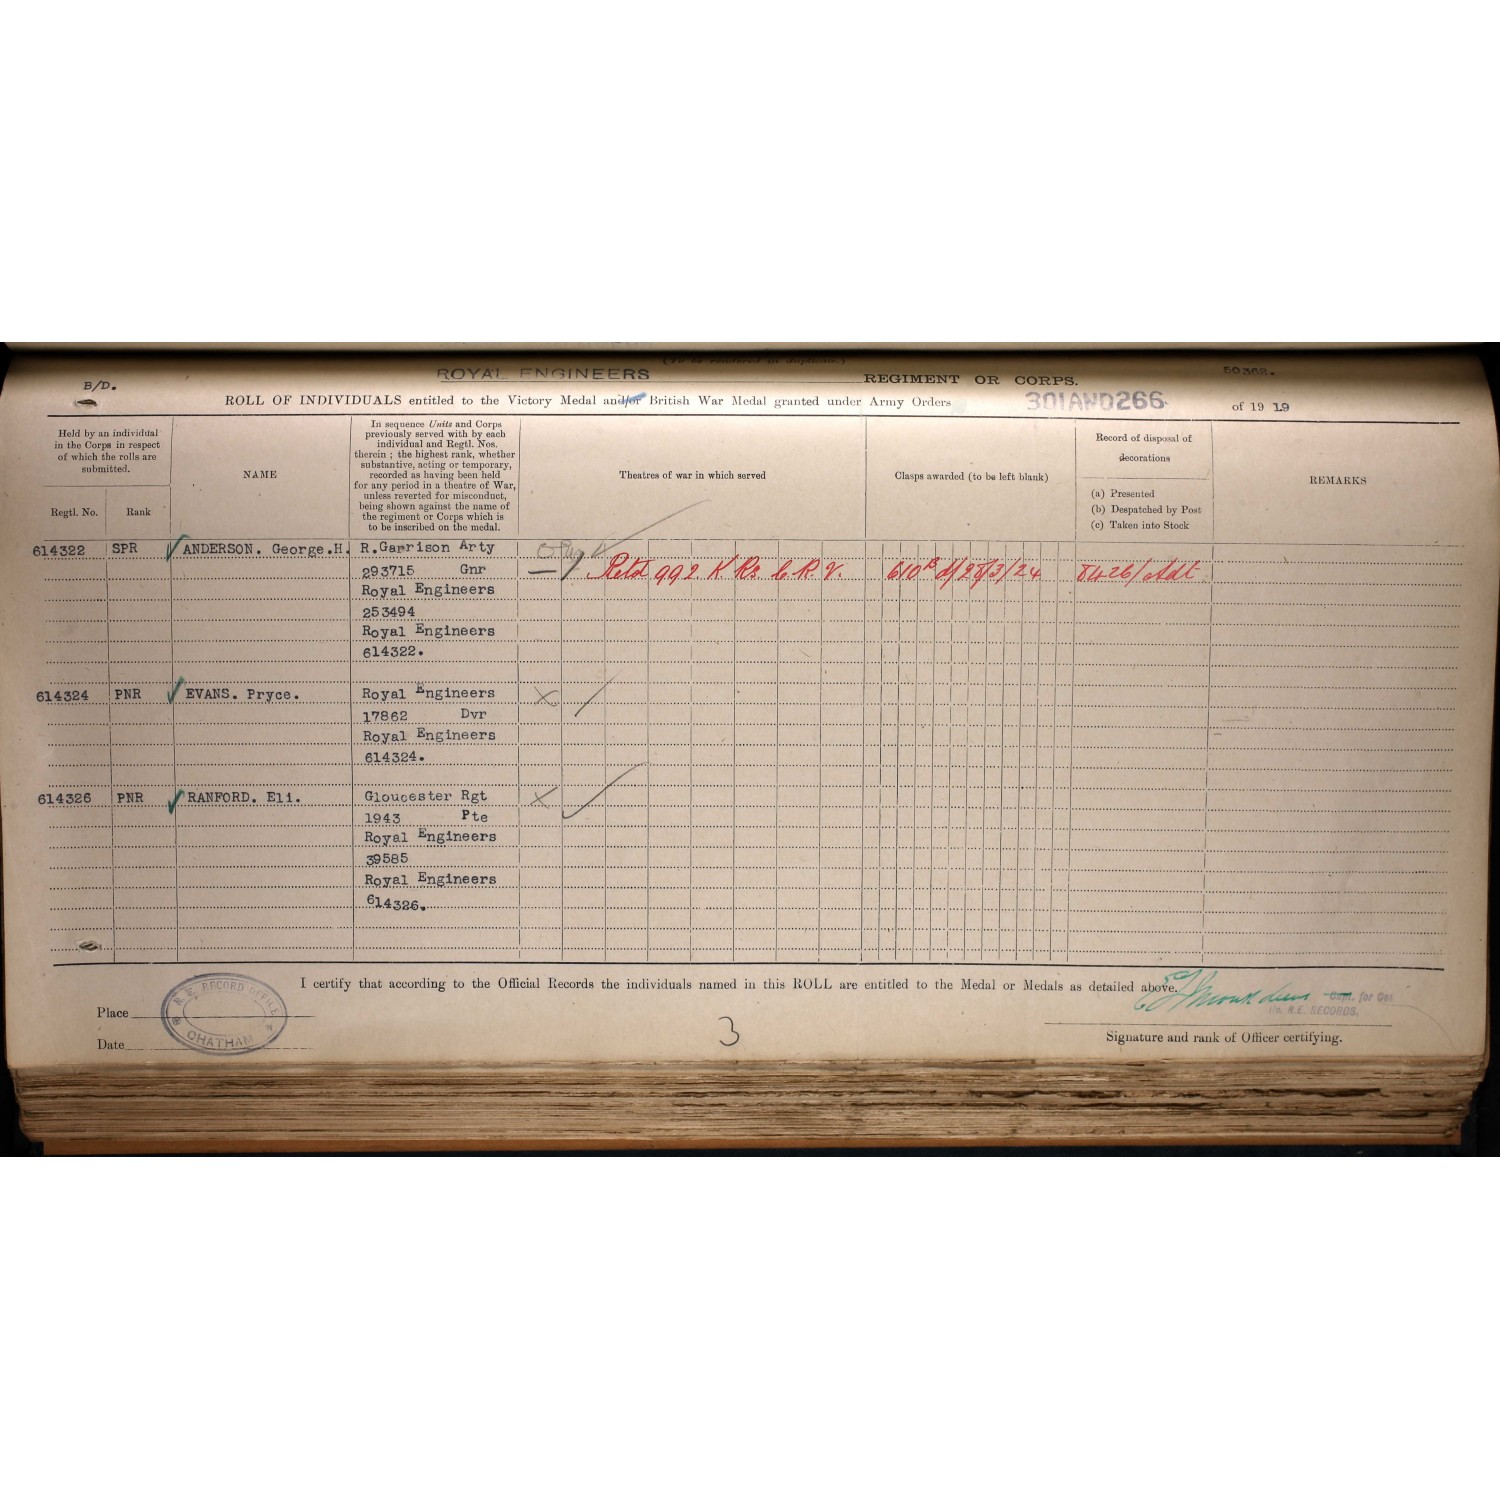 (To be rendered in duplicate.)
ROYAL ENGINEERS REGIMENT OR CORPS. 50362.
B/D.
ROLL OF INDIVIDUALS entitled to the Victory Medal and/or British War Medal granted under Army Orders 301AND266 of 19 19
Held by an individual
in the Corps in respect
of which the rolls are
submitted.
Regtl. No. Rank
NAME
In sequence Units and Corps
previously served with by each
individual and Regtl. Nos.
therein ; the highest rank, whether
substantive, acting or temporary,
recorded as having been held
for any period in a theatre of War,
unless reverted for misconduct,
being shown against the name of
the regiment or Corps which is
to be inscribed on the medal.
Theatres of war in which served
Clasps awarded (to be left blank)
Record of disposal of
decorations
(a) Presented
(b) Despatched by Post
(c) Taken into Stock
REMARKS
614322 SPR ANDERSON. George.H. R.Garrison Arty
293715 Gnr Retd 992 K Rs. 610 d/28/3/24 8426/Adt
Royal Engineers
253494
Royal Engineers
614322.
614324 PNR EVANS. Pryce. Royal Engineers X
17862 Dvr
Royal Engineers
614324.
614326 PNR RANFORD. Eli. Gloucester Rgt X
1943 Pte
Royal Engineers
39585
Royal Engineers
614326.
I certify that according to the Official Records the individuals named in this ROLL are entitled to the Medal or Medals as detailed above.
R.E. RECORD OFFICE
CHATHAM
Place
Date
3
Capt. for Col
i/c R.E. RECORDS.
Signature and rank of Officer certifying.